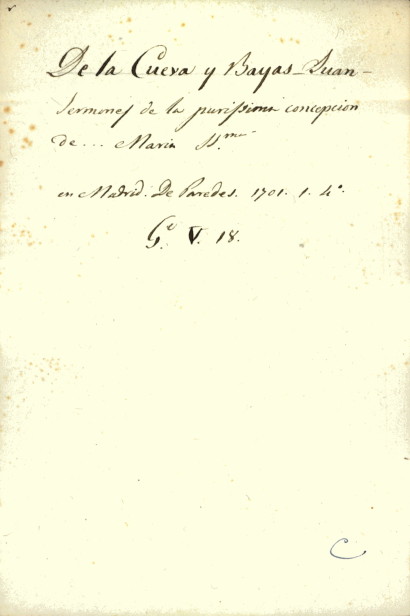 De la Cueva y Bayas - Juan -
Sermones de la purissima concepcion
de... Maria SS.ma
en Madrid. De Paredes. 1701. 1. 4º.
G.e V. 18.
C